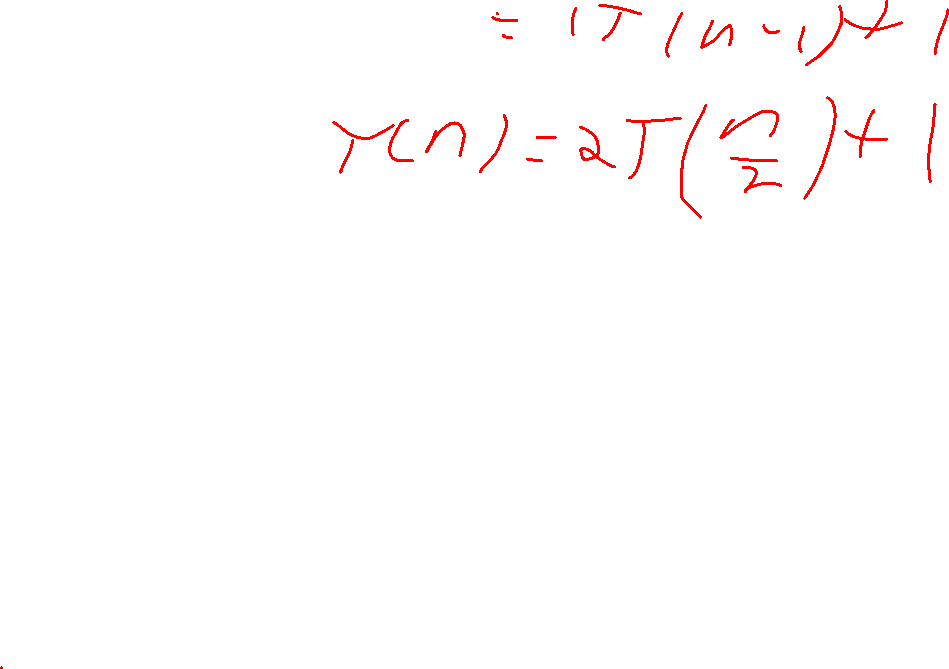 = 1T(n-1)+1
T(n) = 2T(n/2)+1